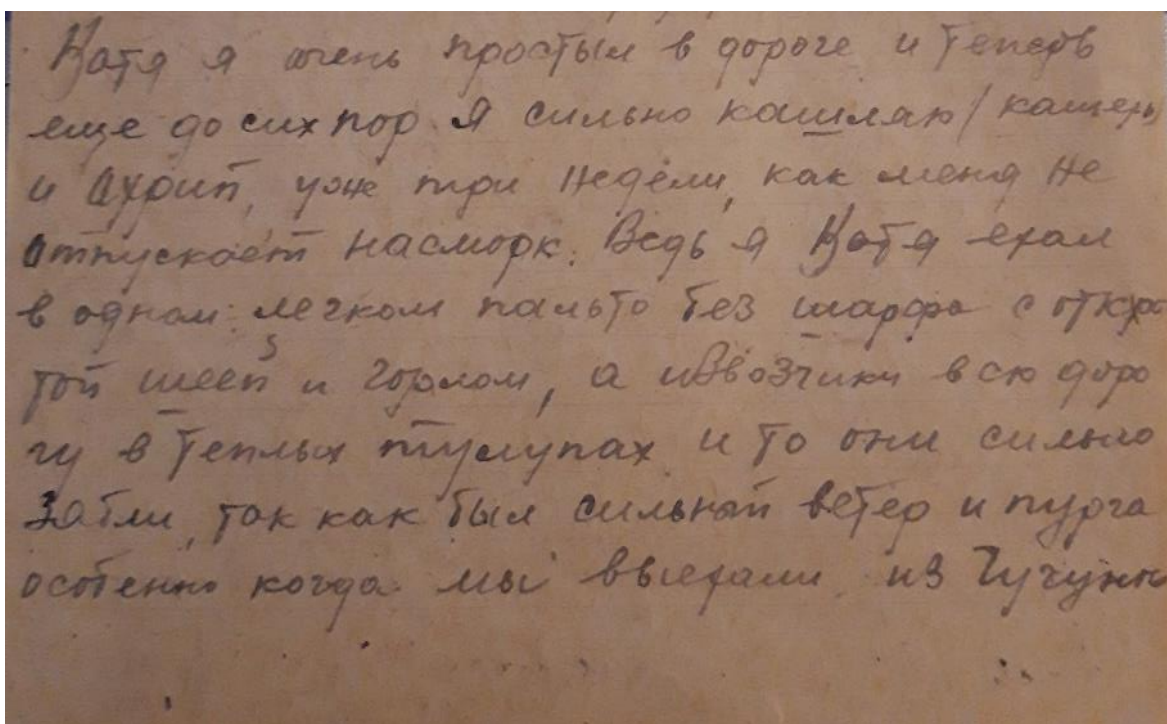 Катя я очень простыл в дороге и теперь
еще до сих пор я сильно кашляю / кашель
и охрип, уже три недели, как меня не
отпускает насморк. Ведь я Катя ехал
в одном легком пальто без шарфа с откры
той шеей и горлом, а извозчики всю доро
гу в теплых тулупах и то они сильно
зябли, так как был сильный ветер и пурга
особенно когда мы выехали из